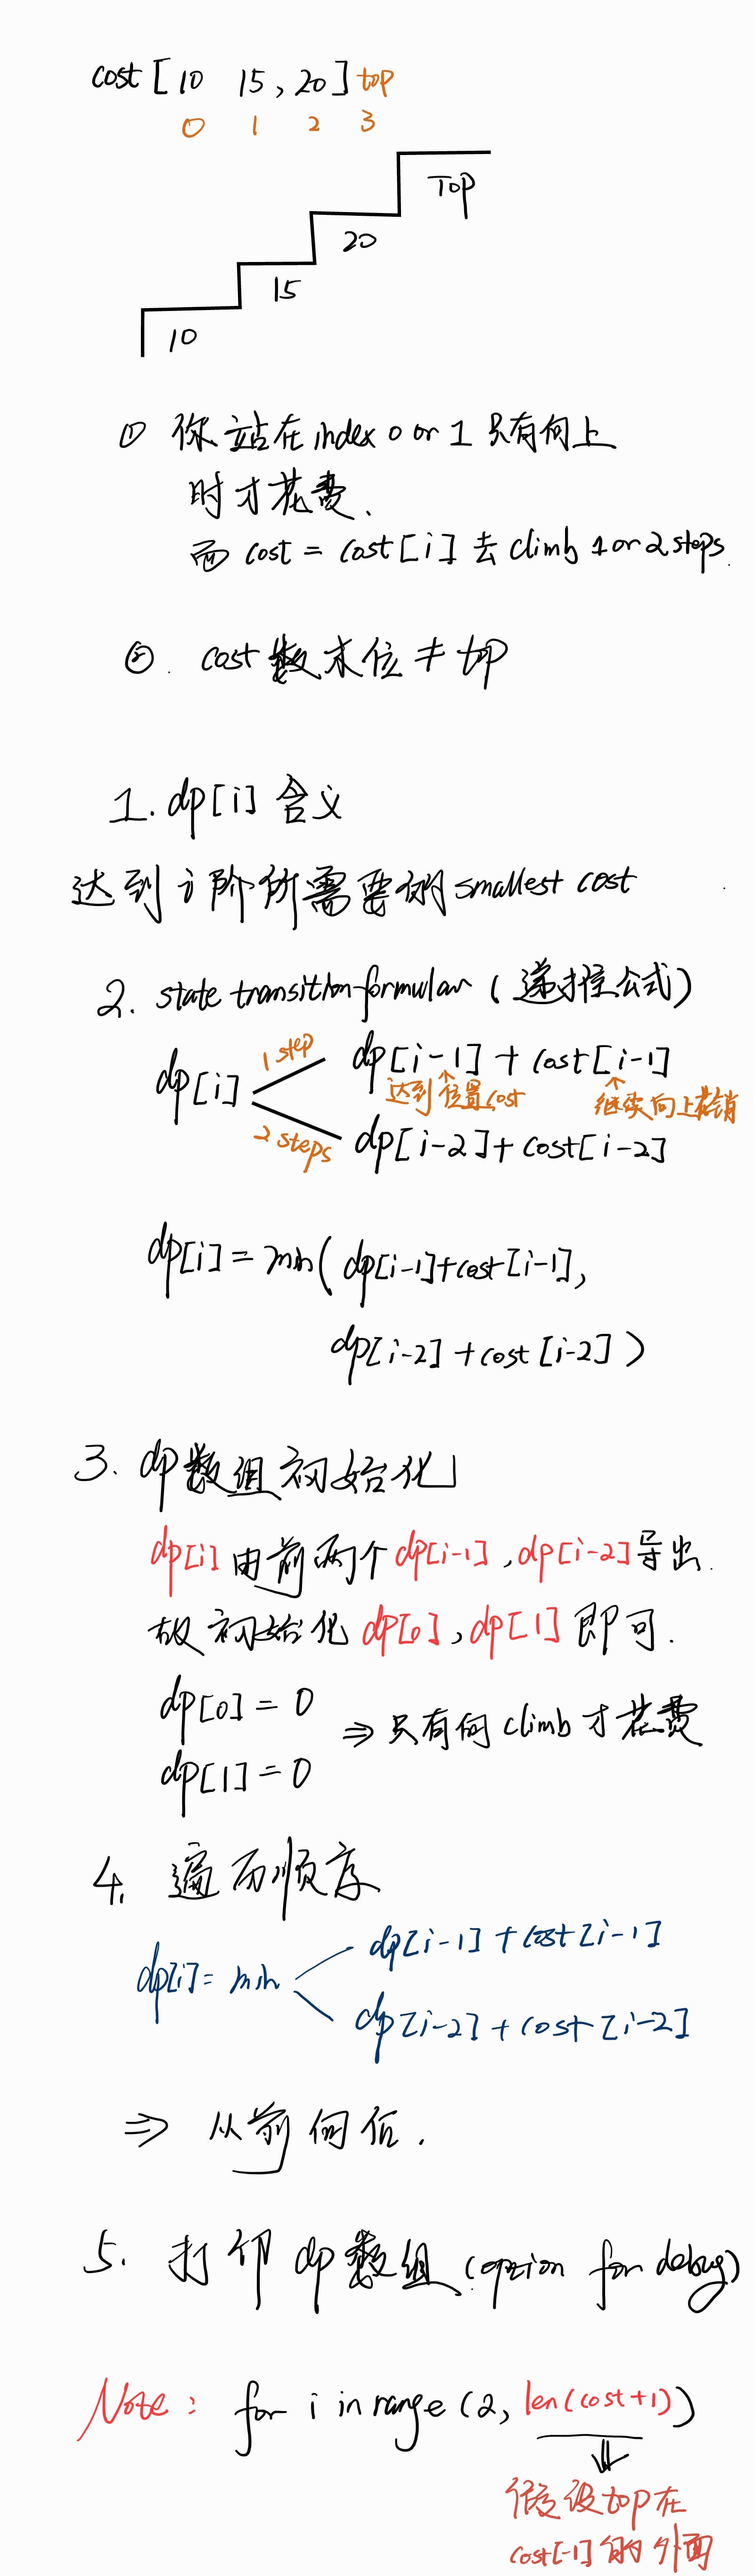 cost [10 15, 20] top
0 1 2 3
TOP
20
15
10
① 你站在 index 0 or 1 只有向上
时才花费、
而 cost = cost[i] 去 climb 1 or 2 steps.
②. cost 数末位 ≠ top
1. dp[i] 含义
达到 i 阶所需要的 smallest cost
2. state transition formular (递推公式)
dp[i]
1 step
dp[i-1] + cost[i-1]
达到位置 cost
继续向上花销
2 steps
dp[i-2] + cost[i-2]
dp[i] = min( dp[i-1]+cost[i-1],
dp[i-2] + cost[i-2] )
3. dp 数组初始化
dp[i] 由前两个 dp[i-1], dp[i-2] 导出.
故初始化 dp[0], dp[1] 即可.
dp[0] = 0
⇒ 只有向 climb 才花费
dp[1] = 0
4. 遍历顺序
dp[i-1] + cost[i-1]
dp[i] = min
dp[i-2] + cost[i-2]
⇒ 从前向后.
5. 打印 dp 数组 (option for debug)
Note: for i in range (2, len(cost+1))
⇓
假设 top 在
cost[-1] 的外面